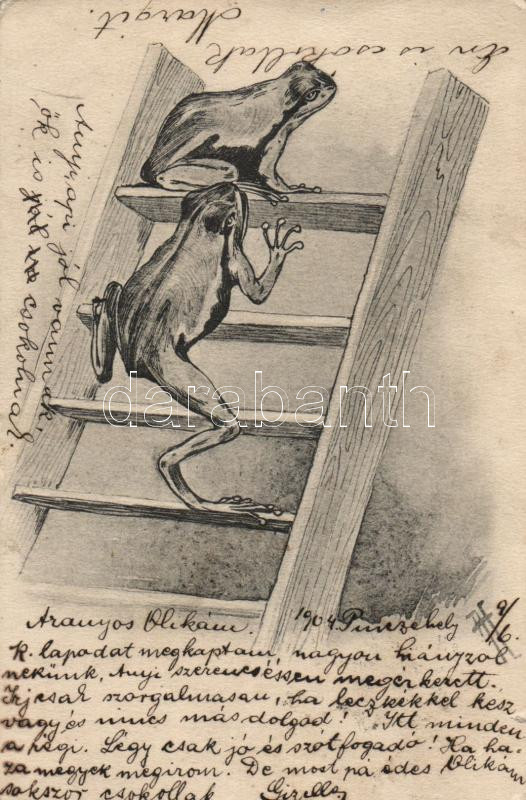 Én is csokollak
Margit.
Anyi, api jól vannak,
ők is csokolnak
darabanth
Aranyos Olikám. 1904 Pinczehely 9/6.
K. lapodat megkaptam, nagyon hiányzol
nekünk, Anyi szerencséssen megérkezett.
Irj csak szorgalmasan, ha leczkékkel kész
vagy és nincs más dolgod! Itt minden
a régi. Légy csak jó és szótfogadó! Ha ha-
za megyek megirom. De most pá édes Olikám
sokszor csokollak Gizella